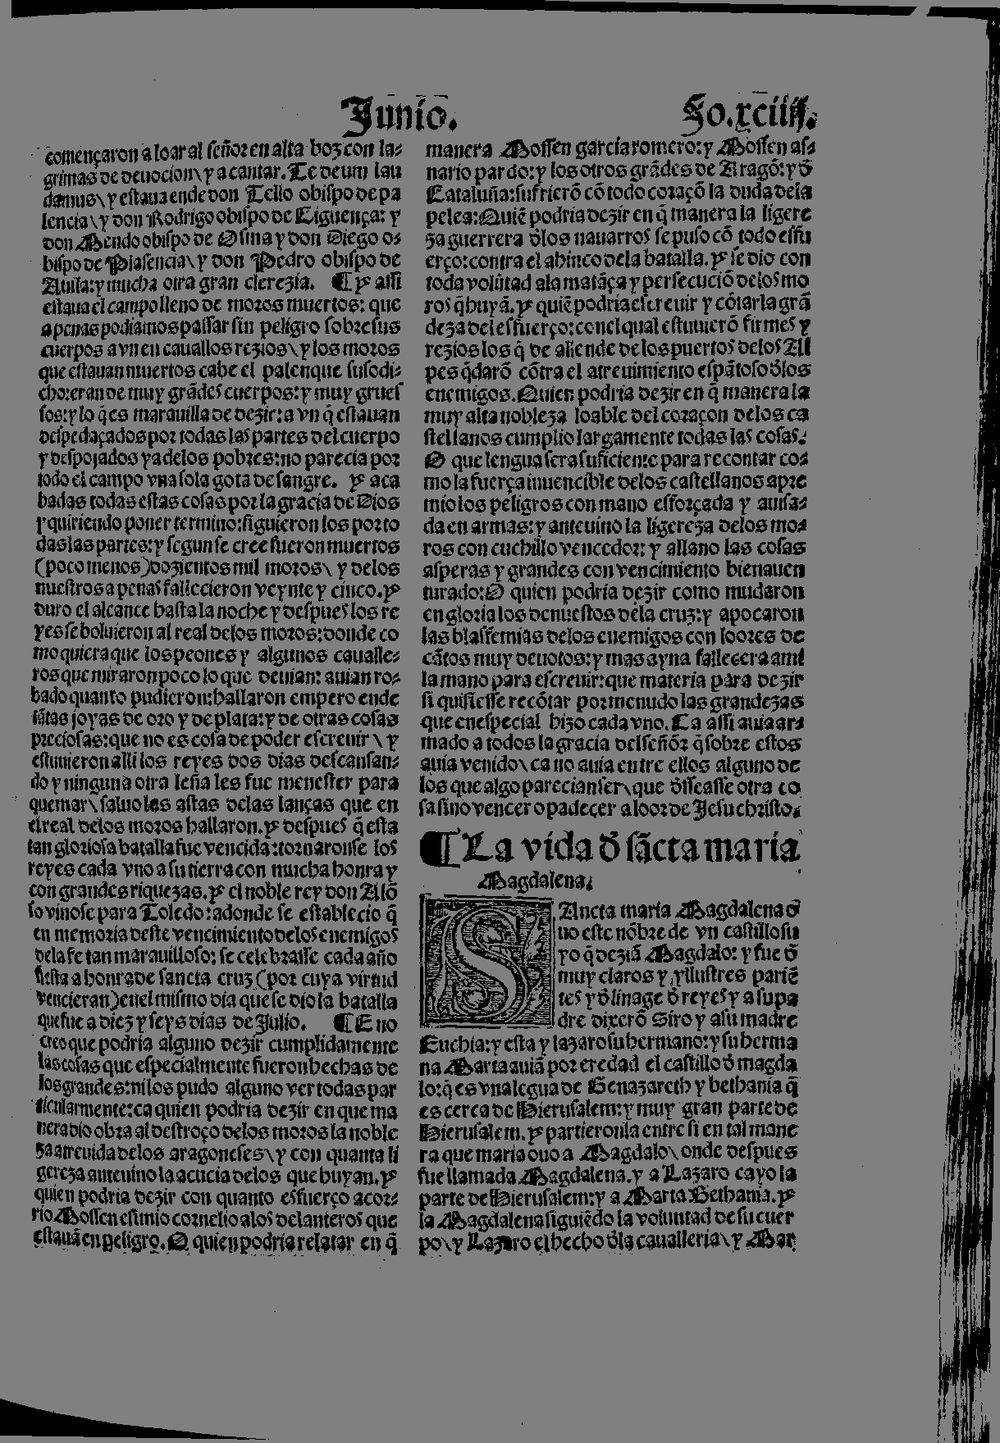 Junio. Fo.xciiij.
començaron a loar al señor en alta boz con la-
grimas de deuocion\ y a cantar. Te deum lau
damus\ y estaua ende don Tello obispo de pa
lencia\ y don Rodrigo obispo de Ciguença: y
don Mendo obispo de Osma y don Diego o-
bispo de Plasencia\ y don Pedro obispo de
Auila: y mucha otra gran clerezia. ¶ Y assi
estaua el campo lleno de moros muertos: que
apenas podiamos passar sin peligro sobre sus
cuerpos avn en cauallos rezios\ y los moros
que estauan muertos cabe el palenque susodi-
cho: eran de muy grãdes cuerpos: y muy grues
sos: y lo q̃ es marauilla de dezir: avn q̃ estauan
despedaçados por todas las partes del cuerpo
y despojados ya delos pobres: no parecia por
todo el campo vna sola gota de sangre. Y aca
badas todas estas cosas por la gracia de Dios
y quiriendo poner termino: siguieron los por to
das las partes: y segun se cree fueron muertos
(poco menos) dozientos mil moros\ y delos
nuestros a penas fallecieron veynte y cinco. Y
duro el alcance hasta la noche y despues los re
yes se boluieron al real delos moros: donde co
mo quiera que los peones y algunos caualle-
ros que miraron poco lo que deuian: auian ro-
bado quanto pudieron: hallaron empero ende
tãtas joyas de oro y de plata: y de otras cosas
preciosas: que no es cosa de poder escreuir\ y
estuuieron alli los reyes dos dias descansan-
do y ninguna otra leña les fue menester para
quemar\ saluo las astas delas lanças que en
el real delos moros hallaron. Y despues q̃ esta
tan gloriosa batalla fue vencida: tornaronse los
reyes cada vno a su tierra con mucha honra y
con grandes riquezas. Y el noble rey don Alõ
so vinose para Toledo: adonde se establecio q̃
en memoria deste vencimiento delos enemigos
dela fe tan marauilloso: se celebrasse cada año
fiesta a honra de sancta cruz (por cuya virtud
vencieran) enel mismo dia que se dio la batalla
que fue a diez y seys dias de Julio. ¶ E no
creo que podria alguno dezir cumplidamente
las cosas que especialmente fueron hechas de
los grandes: ni los pudo alguno ver todas par
ticularmente: ca quien podria dezir en que ma
nera dio obra al destroço delos moros la noble
za atreuida delos aragoneses\ y con quanta li
gereza anteuino la acucia delos que huyan. Y
quien podria dezir con quanto esfuerço acor-
rio Mossen esimio cornelio alos delanteros que
estauã en peligro. O quien podria relatar en q̃
manera Mossen garcia romero: y Mossen as-
nario pardo: y los otros grãdes de Aragõ: y d̃
Cataluña: sufrierõ cõ todo coraçõ la duda dela
pelea: Quiẽ podria dezir en q̃ manera la ligere
za guerrera d̃los nauarros se puso cõ todo esfu
erço: contra el ahinco dela batalla. Y se dio con
toda volũtad ala matãça y persecuciõ delos mo
ros q̃ huyã. Y quiẽ podria escreuir y cõtar la grã
deza del esfuerço: conel qual estuuierõ firmes y
rezios los q̃ de allende delos puertos delos Al
pes q̃darõ cõtra el atreuimiento espãtoso d̃los
enemigos. Quien podria dezir en q̃ manera la
muy alta nobleza loable del coraçon delos ca
stellanos cumplio largamente todas las cosas.
O que lengua sera suficiente para recontar co-
mo la fuerça inuencible delos castellanos apre
mio los peligros con mano esforçada y auisa-
da en armas: y anteuino la ligereza delos mo-
ros con cuchillo vencedor: y allano las cosas
asperas y grandes con vencimiento bienauen
turado: O quien podria dezir como mudaron
en gloria los denuestos dela cruz: y apocaron
las blasfemias delos enemigos con loores de
cãtos muy deuotos: y mas ayna fallecera a mi
la mano para escreuir: que materia para dezir
si quisiesse recõtar por menudo las grandezas
que en especial hizo cada vno. Ca assi auia ar-
mado a todos la gracia del señor q̃ sobre estos
auia venido\ ca no auia entre ellos alguno de
los que algo parecian ser\ que d̃sseasse otra co
sa sino vencer o padeçer a loor de Jesu christo.
¶ La vida d̃ sãcta maria
Magdalena.
SAncta maria Magdalena d̃
uo este nõbre de vn castillo su
yo q̃ deziã Magdalo: y fue d̃
muy claros y yllustres pariẽ
tes y d̃ linage d̃ reyes y a su pa
dre dixerõ Siro y a su madre
Euchia: y esta y lazaro su hermano: y su herma
na Marta auiã por eredad el castillo d̃ magda
lo: q̃ es vna legua de Genazareth y bethania q̃
es cerca de Hierusalem: y muy gran parte de
Hierusalem. Y partieronla entre si en tal mane
ra que maria ouo a Magdalo\ onde despues
fue llamada Magdalena. y a Lazaro cayo la
parte de Hierusalem: y a Marta Bethania. Y
la Magdalena siguiẽdo la voluntad de su cuer
po\ y Lazaro el hecho d̃la caualleria\ y Mar